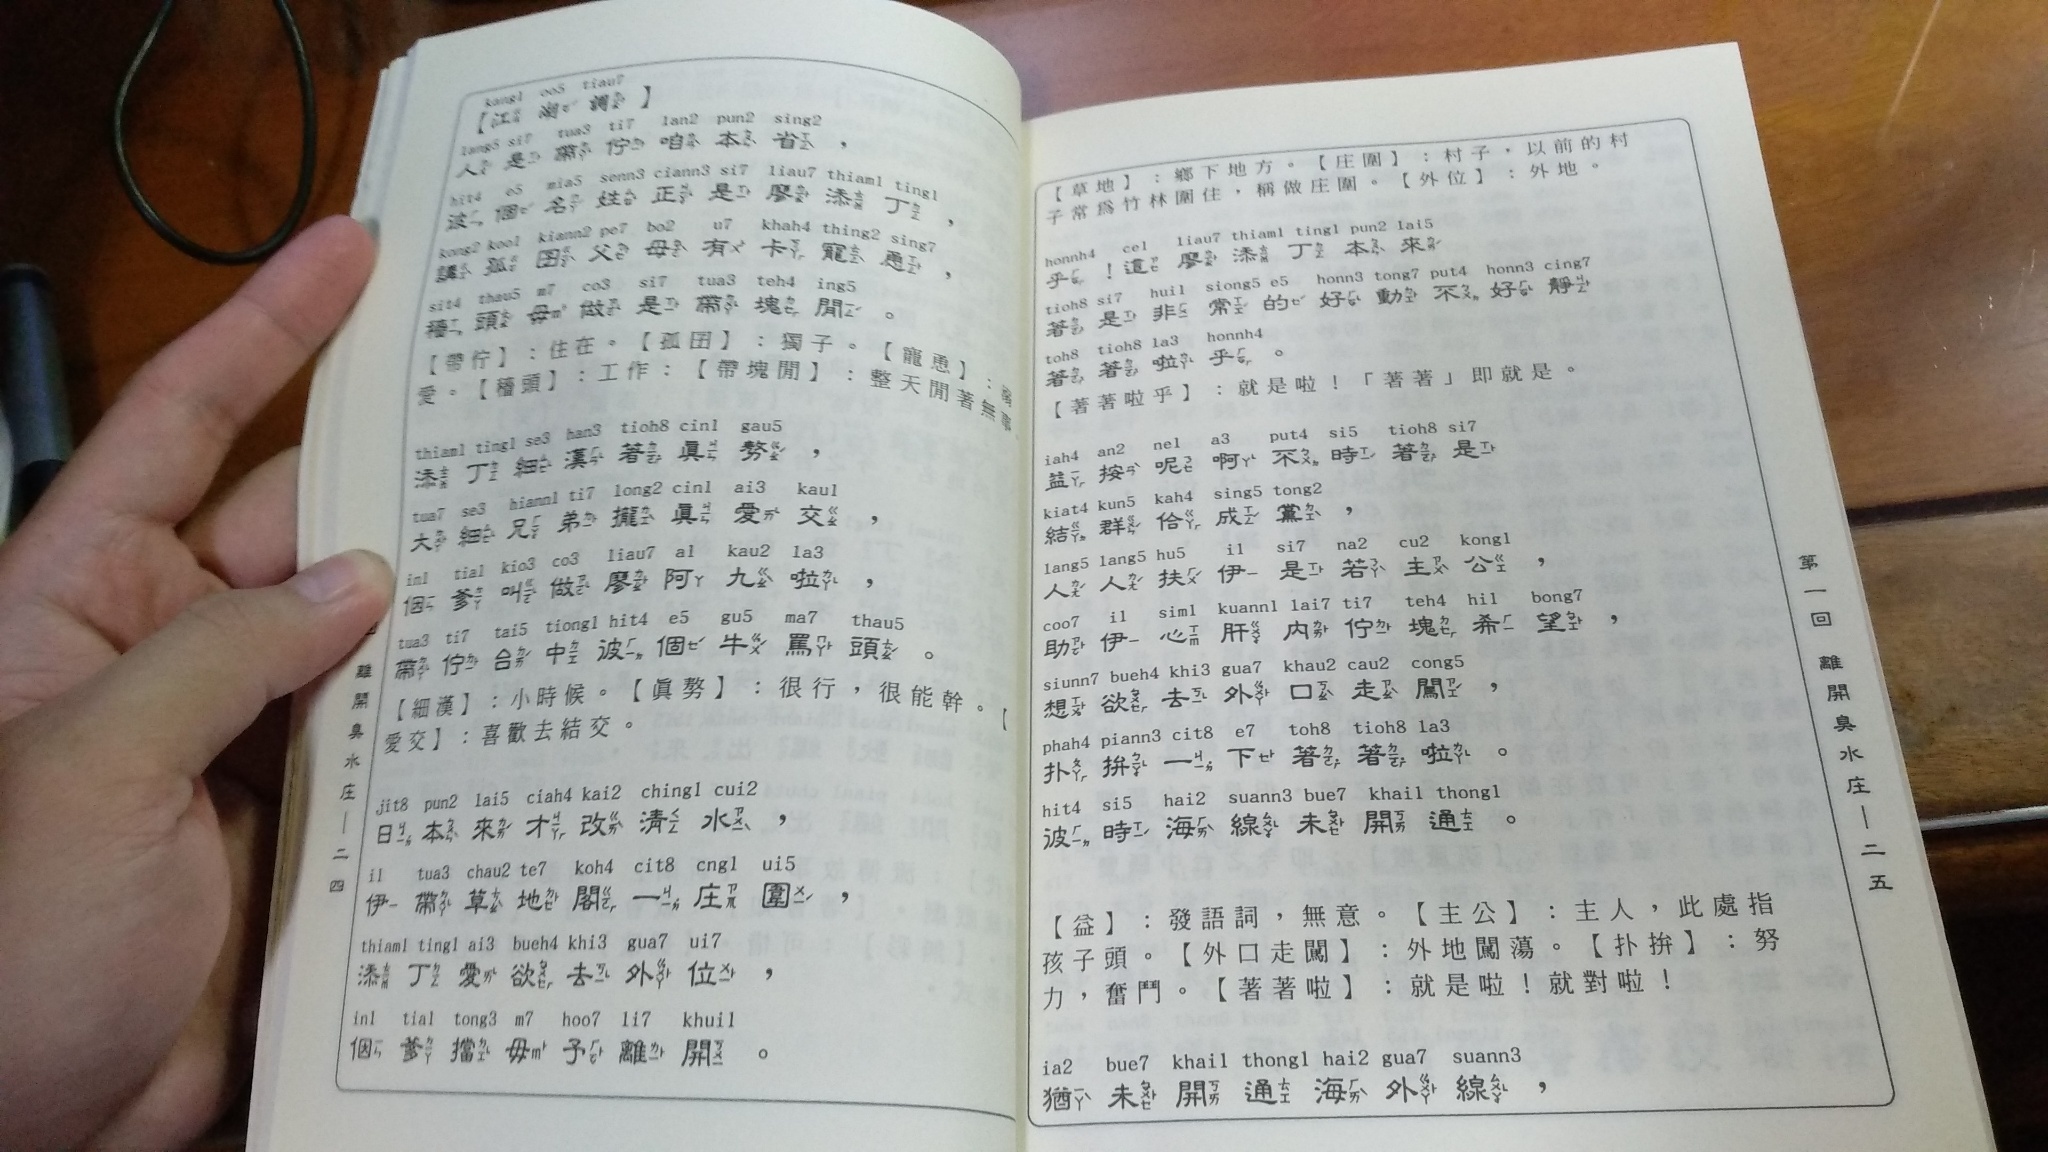 kang1 oo5 tiau7
【江湖調】
lang5 si7 tua3 ti7 lan2 pun2 sing2
人是帶佇咱本省，
hit4 e5 mia5 senn3 ciann3 si7 liau7 thiam1 ting1
彼個名姓正是廖添丁，
kong2 koo1 kiann2 pe7 bo2 u7 khah4 thing2 sing7
講孤囝父母有卡寵恿，
sit4 thau5 m7 co3 si7 tua3 teh4 ing5
穡頭毋做是帶塊閒。
【帶佇】：住在。【孤囝】：獨子。【寵恿】：溺
愛。【穡頭】：工作：【帶塊閒】：整天閒著無事。
thiam1 ting1 se3 han3 tioh8 cin1 gau5
添丁細漢著真勢，
tua7 se3 hiann1 ti7 long2 cin1 ai3 kau1
大細兄弟攏真愛交，
in1 tia1 kio3 co3 liau7 a1 kau2 la3
𪜶爹叫做廖阿九啦，
tua3 ti7 tai5 tiong1 hit4 e5 gu5 ma7 thau5
帶佇台中彼個牛罵頭。
【細漢】：小時候。【真勢】：很行，很能幹。【
愛交】：喜歡去結交。
jit8 pun2 lai5 ciah4 kai2 ching1 cui2
日本來才改清水，
i1 tua3 chau2 te7 koh4 cit8 cng1 ui5
伊帶草地閣一庄圍，
thiam1 ting1 ai3 bueh4 khi3 gua7 ui7
添丁愛欲去外位，
in1 tia1 tong3 m7 hoo7 li7 khui1
𪜶爹擋毋予離開。
第一回 離開臭水庄—二四
【草地】：鄉下地方。【庄圍】：村子，以前的村
子常為竹林圍住，稱做庄圍。【外位】：外地。
honnh4 ce1 liau7 thiam1 ting1 pun2 lai5
乎！這廖添丁本來
tioh8 si7 hui1 siong5 e5 honn3 tong7 put4 honn3 cing7
著是非常的好動不好靜
toh8 tioh8 la3 honnh4
著著啦乎。
【著著啦乎】：就是啦！「著著」即就是。
iah4 an2 ne1 a3 put4 si5 tioh8 si7
益按呢啊不時著是
kiat4 kun5 kah4 sing5 tong2
結群佮成黨，
lang5 lang5 hu5 i1 si7 na2 cu2 kong1
人人扶伊是若主公，
coo7 i1 sim1 kuann1 lai7 ti7 teh4 hi1 bong7
助伊心肝內佇塊希望，
siunn7 bueh4 khi3 gua7 khau2 cau2 cong5
想欲去外口走闖，
phah4 piann3 cit8 e7 toh8 tioh8 la3
扑拚一下著著啦。
hit4 si5 hai2 suann3 bue7 khai1 thong1
彼時海線未開通。
【益】：發語詞，無意。【主公】：主人，此處指
孩子頭。【外口走闖】：外地闖蕩。【扑拚】：努
力，奮鬥。【著著啦】：就是啦！就對啦！
ia2 bue7 khai1 thong1 hai2 gua7 suann3
猶未開通海外線，
第一回 離開臭水庄—二五